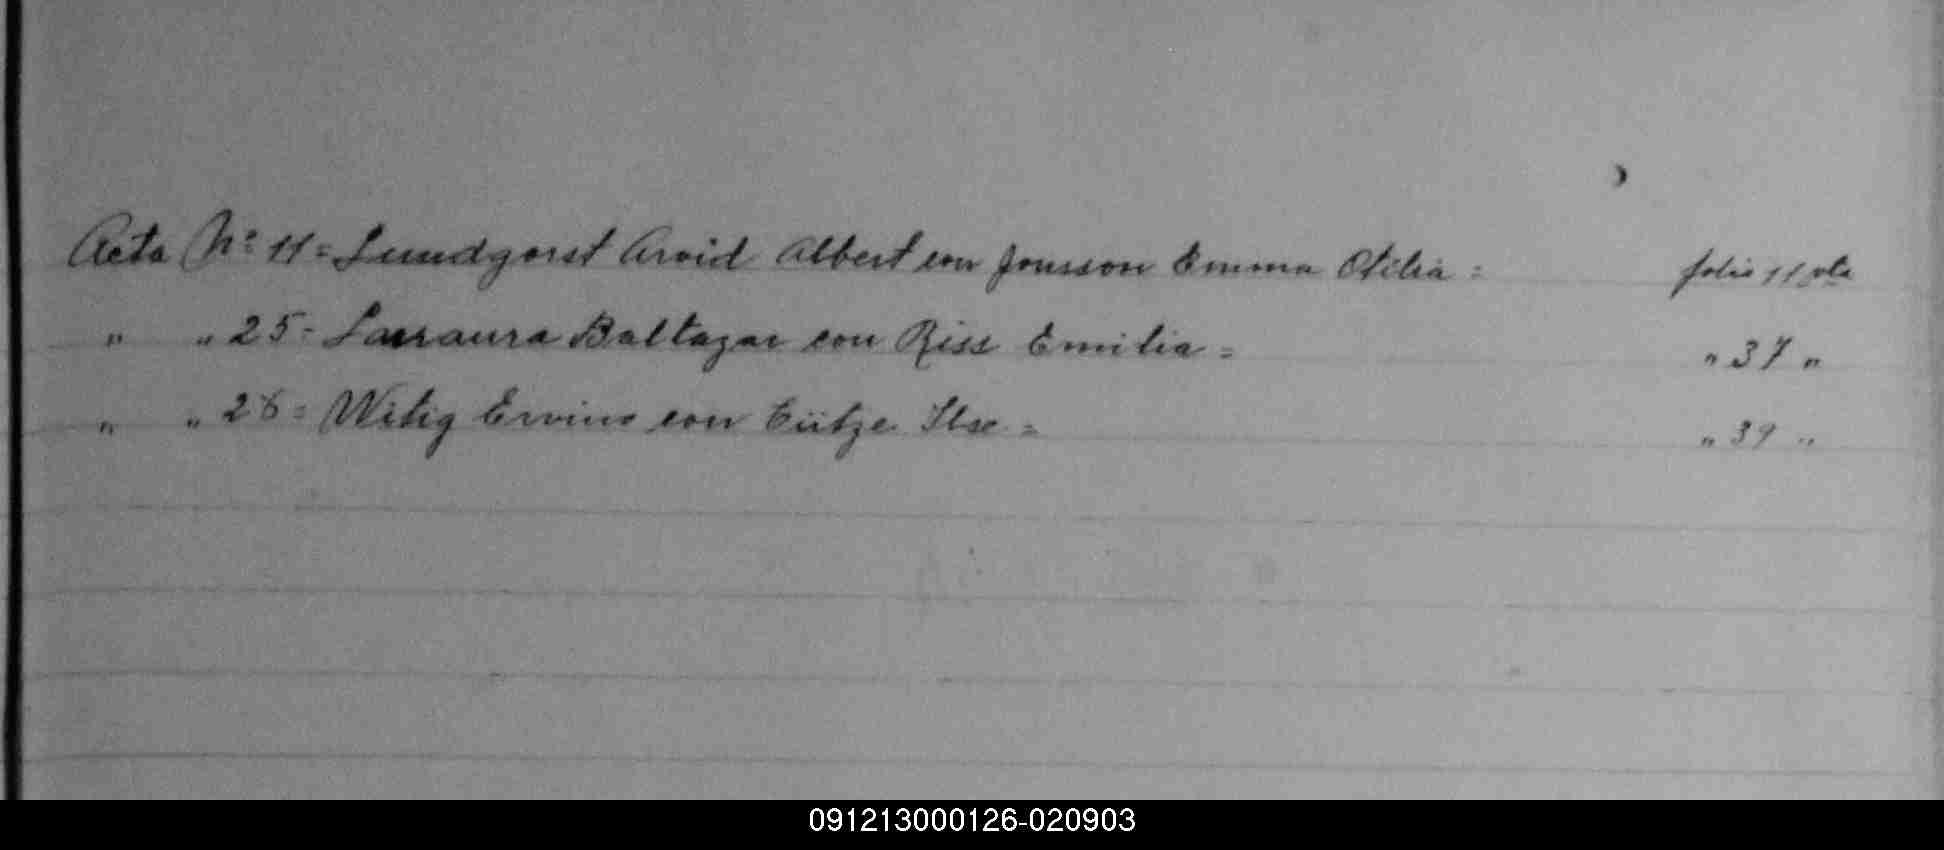 Acta Nº 11 = Lundgorst Arvid Albert con Jonsson Emma Otilia = folio 11 vta
" " 25 = Larraura Baltazar con Riss Emilia = " 37 "
" " 26 = Witig Ervino con Eütze Ilse = " 39 "
091213000126-020903